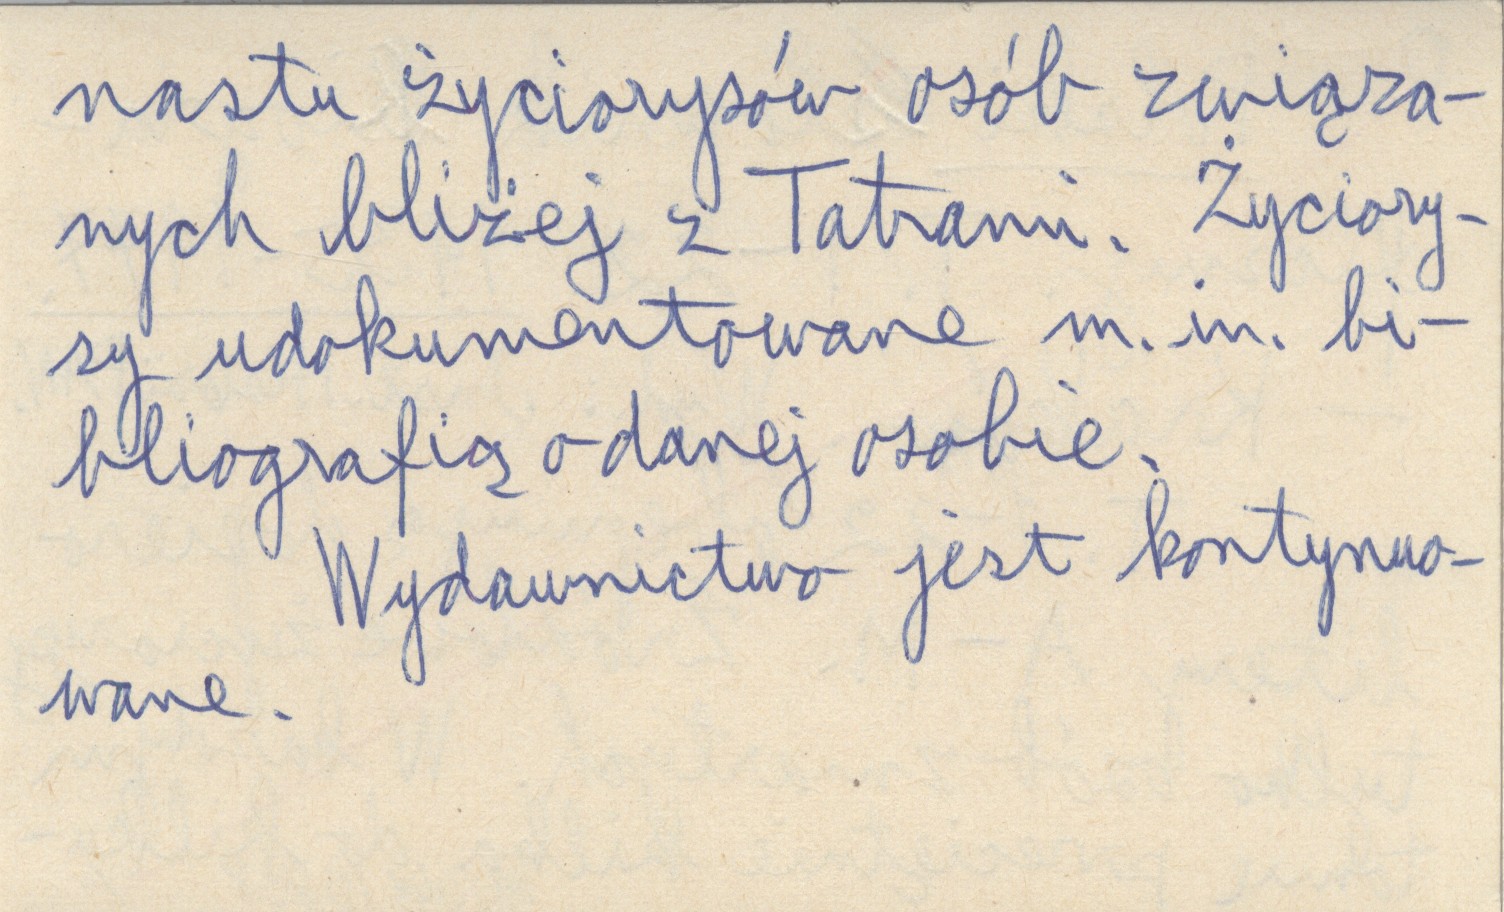 nastu życiorysów osób związa-
nych bliżej z Tatrami. Życiory-
sy udokumentowane m.in. bi-
bliografią o danej osobie.
Wydawnictwo jest kontynuo-
wane.